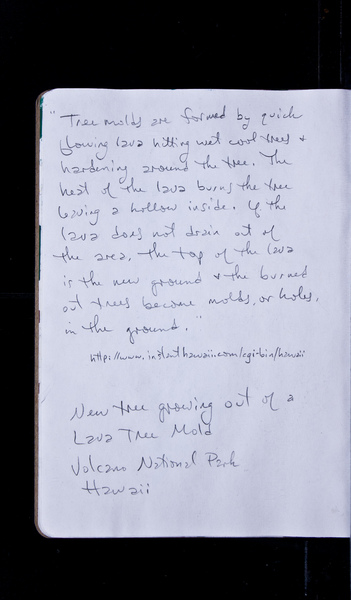 "Tree molds are formed by quick
flowing lava hitting wet cool trees +
hardening around the tree. The
heat of the lava burns the tree
leaving a hollow inside. If the
lava does not drain out of
the area, the top of the lava
is the new ground + the burned
out trees become molds, or holes,
in the ground."
http://www.instanthawaii.com/cgi-bin/hawaii
New tree growing out of a
Lava Tree Mold
Volcano National Park
Hawaii